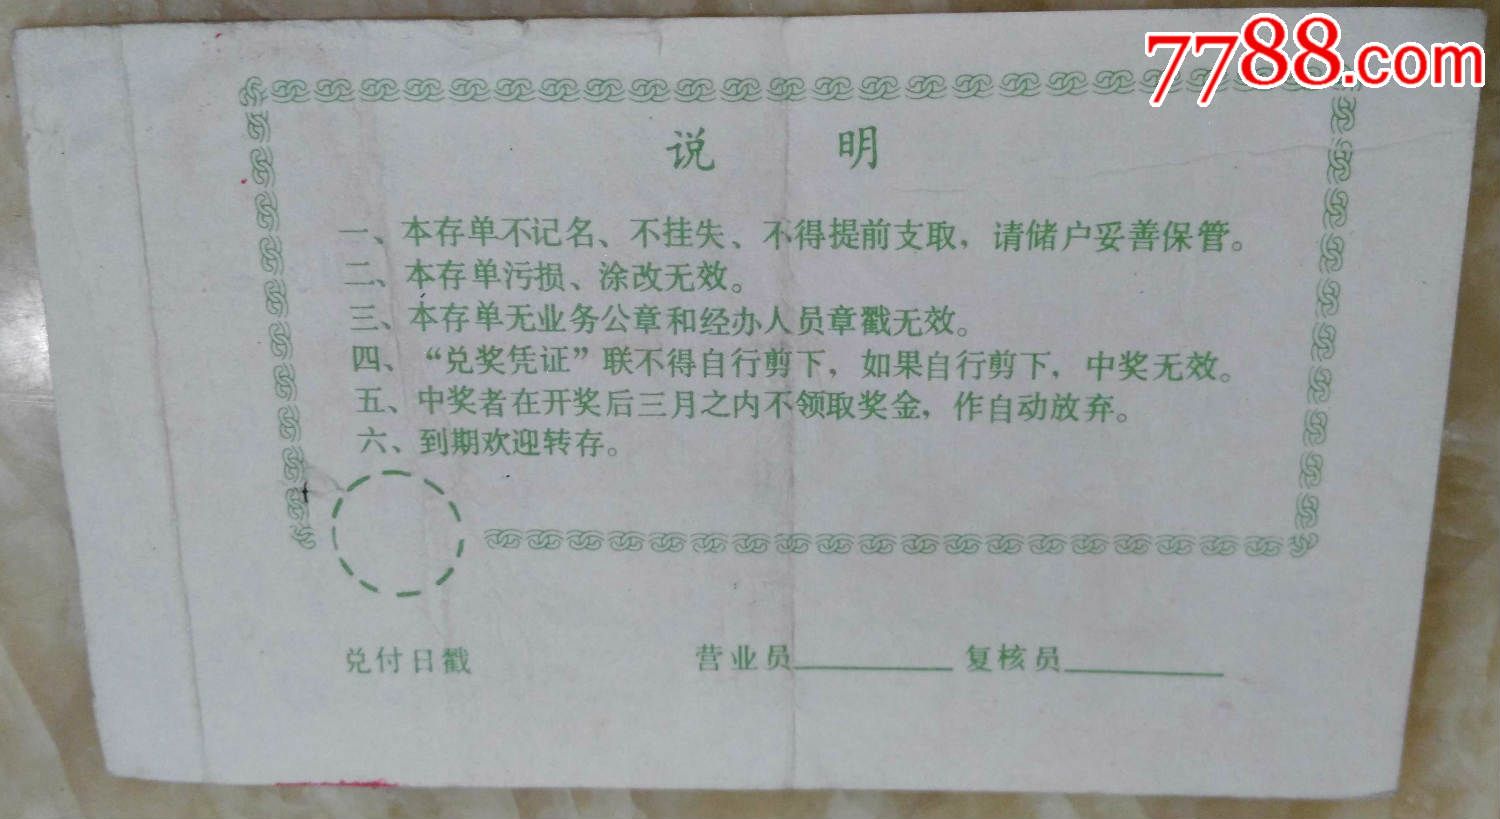 7788.com
说 明
一、本存单不记名、不挂失、不得提前支取，请储户妥善保管。
二、本存单污损、涂改无效。
三、本存单无业务公章和经办人员章戳无效。
四、“兑奖凭证”联不得自行剪下，如果自行剪下，中奖无效。
五、中奖者在开奖后三月之内不领取奖金，作自动放弃。
六、到期欢迎转存。
兑付日戳 营业员 复核员